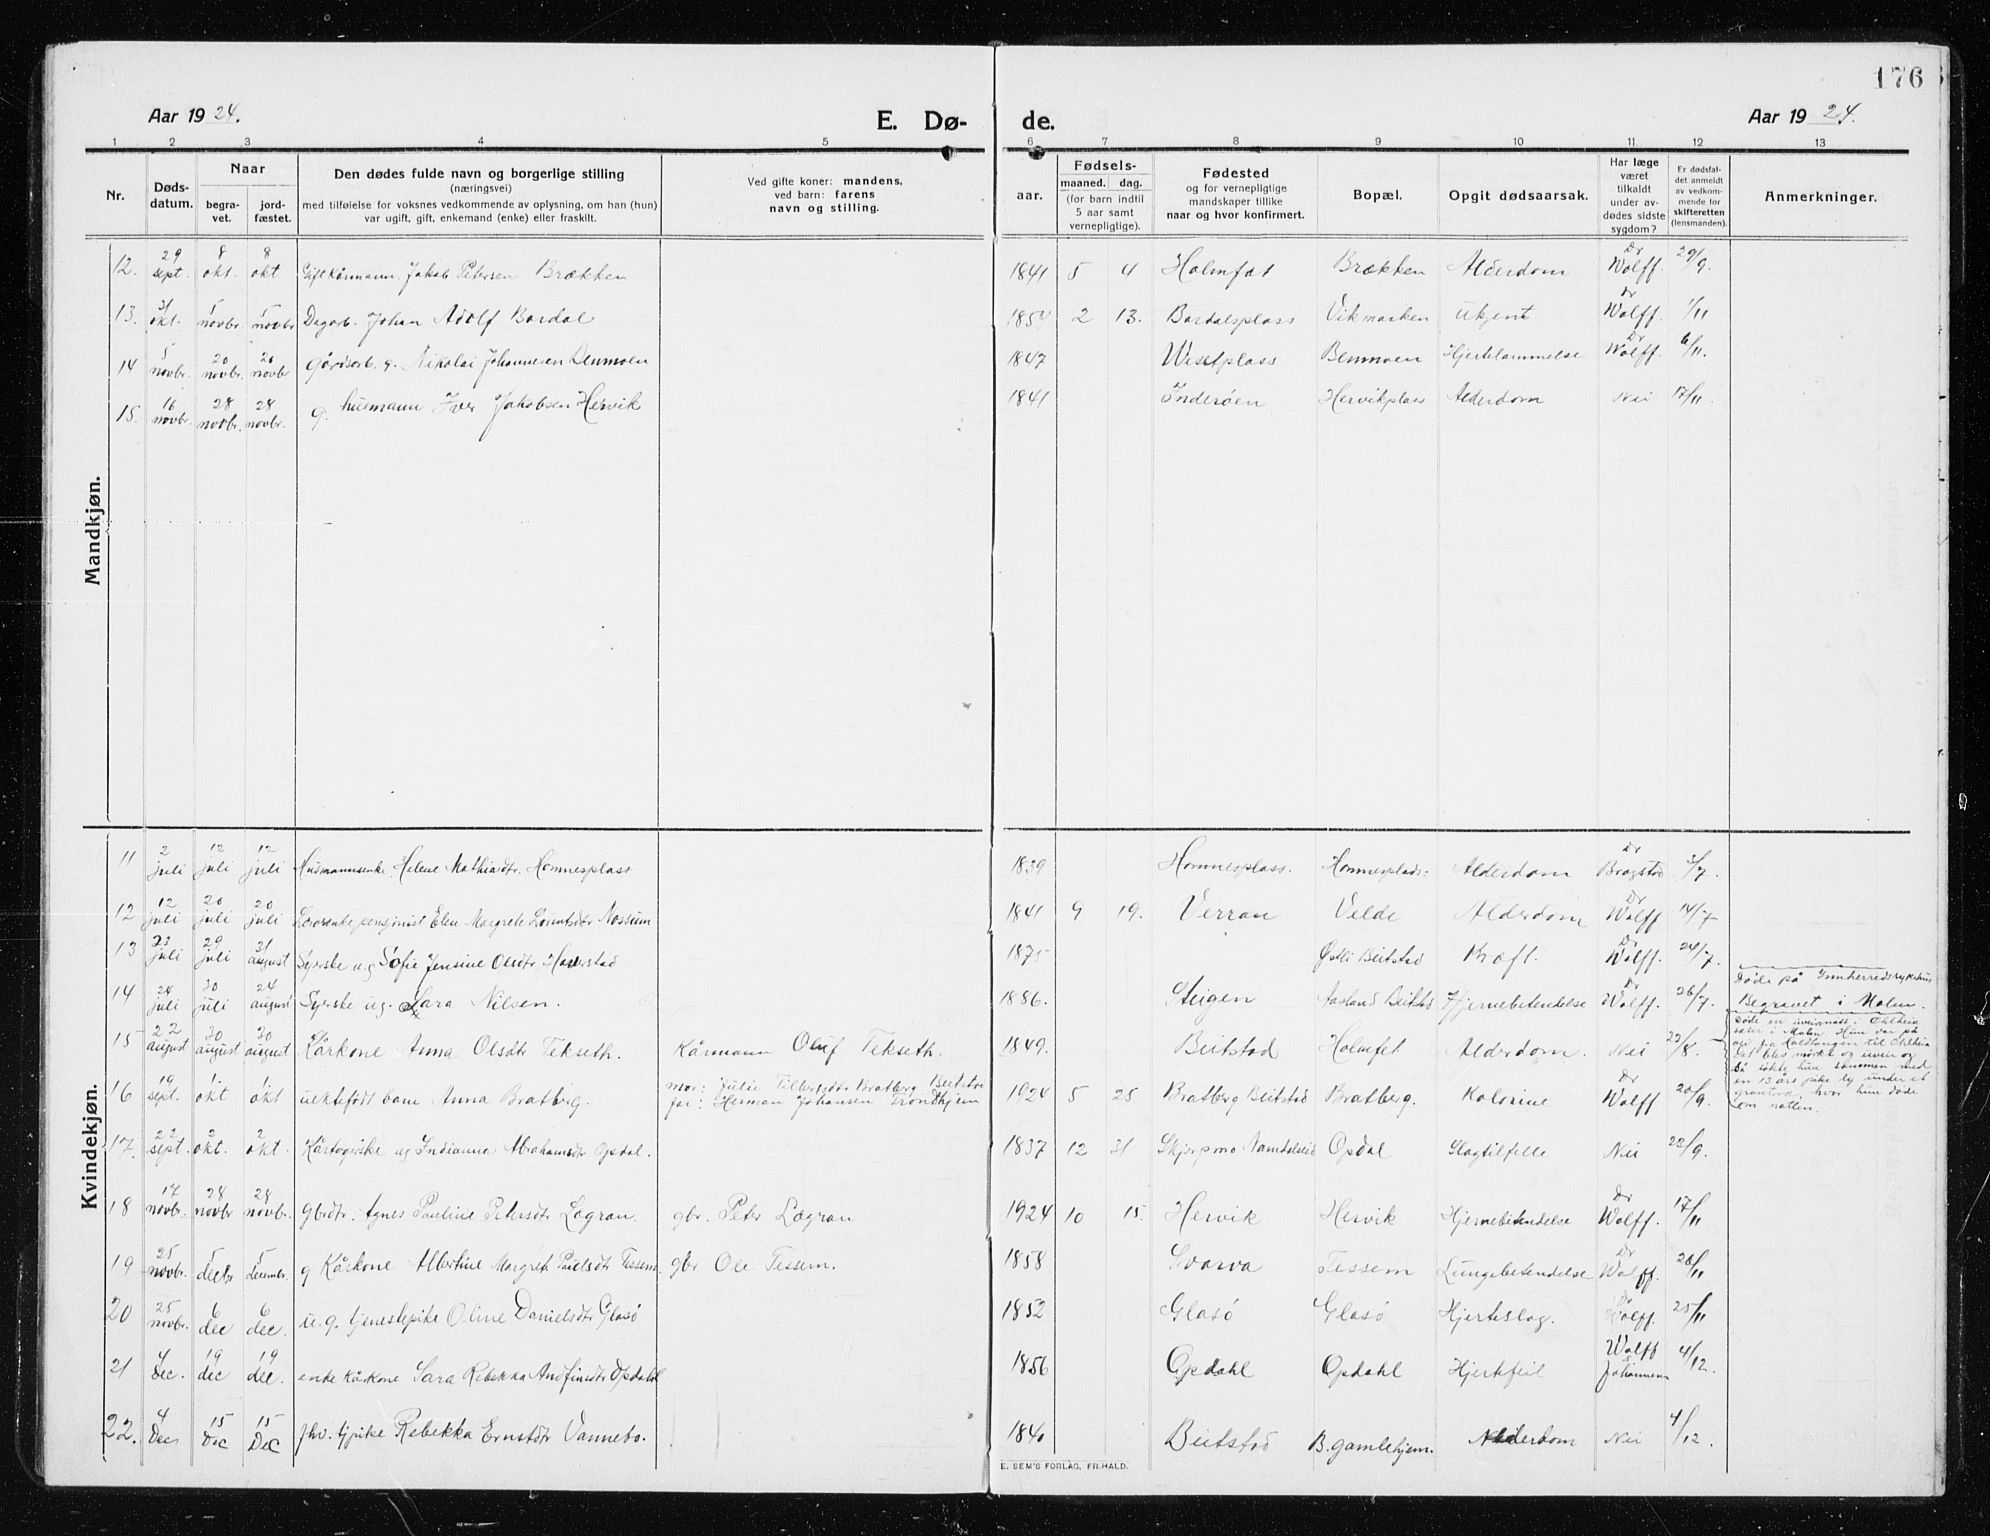 176
Aar 1924.
E. Dø-
de.
Aar 1924.
1 2 3 4 5 6 7 8 9 10 11 12 13
Nr.
Døds-
datum.
Naar
begra-
vet.
jord-
fæstet.
Den dødes fulde navn og borgerlige stilling
(næringsvei)
med tilføielse for voksnes vedkommende av oplysning, om han (hun)
var ugift, gift, enkemand (enke) eller fraskilt.
Ved gifte koner: mandens,
ved barn: farens
navn og stilling.
aar.
Fødsels-
maaned. dag.
(for barn indtil
5 aar samt
vernepligtige).
Fødested
og for vernepligtige
mandskaper tillike
naar og hvor konfirmert.
Bopæl.
Opgit dødsaarsak.
Har læge
været
tilkaldt
under av-
dødes sidste
sygdom?
Er dødsfal-
det anmeldt
av vedkom-
mende for
skifteretten
(lensmanden).
Anmerkninger.
Mandkjøn.
12. 29 sept. 8 okt. 8 okt Gift kårmann. Jakob Petersen Brækken 1841 5 4 Holmfæt Brækken Alderdom Dr Wolff. 29/9.
13. 31 okt. 5 novbr 5 novbr Dagarb. Johan Adolf Bardal 1854 2 13. Bardalsplass Vikmarken Ukjent Dr Wolff. 1/11
14 5 novbr. 20 novbr. 20 novbr Gårdsarb. g. Nikolai Johannesen Benmoen 1847 Wistplass Benmoen Hjertelammelse Dr Wolff. 6/11.
15. 16 novbr. 28 novbr. 28 novbr. g. husmann Iver Jakobsen Hervik 1841 Inderøen Hervikplass Alderdom Nei 17/11.
Kvindekjøn.
11 2 juli 12 juli 12 juli Husmannsenke. Helene Mathiasdtr. Hommesplass 1839 Hommesplass. Hommesplads- Alderdom Dr Bragstad 3/7.
12 12 juli 20 juli 20 juli pensjonist Elen Margrete Lorntsdtr Nossum 1841 9 19. Verran Velde Alderdom Dr Wolff 14/7
13 23 juli 29 juli 31 august Syerske ug Sofie Jensine Olsdtr Haverstad 1875 Østli Beitstad Kræft. Dr Wolff. 24/7.
14 24 juli 30 juli 24 august Syerske ug. Sara Nilsen. 1886. Steigen Aasland Beitstad Hjernebetendelse Dr Wolff. 26/7. Døde på Innherredssykehus Begravet i Malm.
15 22 august 30 august 30 august Kårkone Anna Olsdtr Tekseth. Kårmann Oluf Tekseth. 1849. Beitstad Holmfet Alderdom. Nei 23/8.
Døde en uveirsnatt i
sæter i Malm. Hun var på
vei fra Kaldtangen til
Det blev mørkt og uveir og
så søkte hun sammen med
en 13 års pike ly under et
grantre, hvor hun døde
om natten.
16 19 sept. 1 okt 1 okt uektefødt barn Anna Bratberg. mor: Julie Tilbersdtr Bratberg Beitstad
far: Herman Johansen Trondhjem 1924 5 25 Bratberg Beitstad Bratberg. Kolorine Dr Wolff 20/9.
17. 22 sept. 2 okt. 2 okt. Kårtagerske ug Indianna Abrahamsdtr Opdal. 1837 12 31 Namdalseid Opdal Slagtilfelle Nei 22/9.
18 17 novbr. 28 novbr 28 novbr. gbrdtr. Agnes Pauline Petersdtr Løgran. gbr. Peter Løgran 1924 10 15. Hervik Hervik Hjernebetendelse Dr Wolff. 17/11
19 25 novbr. 5 decbr 5 decembr. g Kårkone Albertine Margrete Paulsdtr Tessem. gbr Ole Tessem. 1858 Svarva Tessem Lungebetendelse Dr Wolff. 28/11
20 25 novbr. 6 dec 6 dec. u.g. tjenestepike Oline Danielsdtr Glasø 1852 Glasø Glasø Hjerteslag. Dr Wolff. 25/11
21 4 Dec. 19 dec 19 dec. enke kårkone Sara Rebekka Andfinsdtr Opdahl 1856 Opdahl Opdahl Hjertefeil Wolff & Johannesen 4/12.
22. 4 Dec 15 Dec 15 Dec fhv. tjpike Rebekka Ernstdtr Vannebo. 1840 Beitstad B. gamlehjem. Alderdom Nei 4/12.
E. SEM'S FORLAG, FR.HALD.